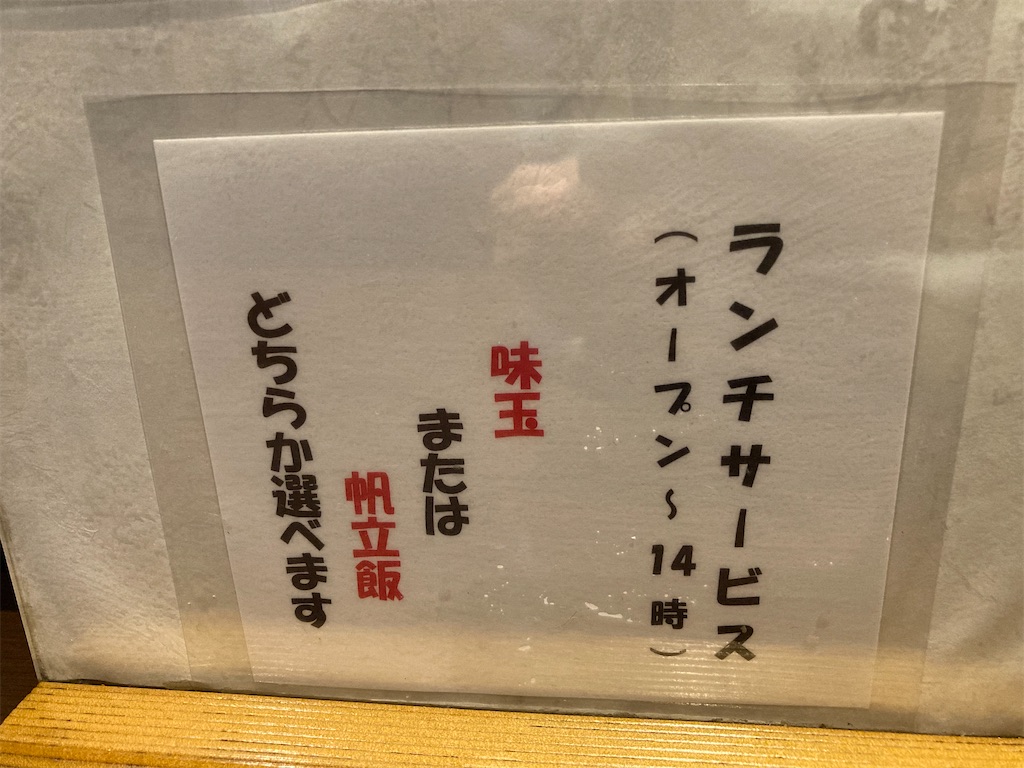 ランチサービス
（オープン～14時）
味玉
または
帆立飯
どちらか選べます